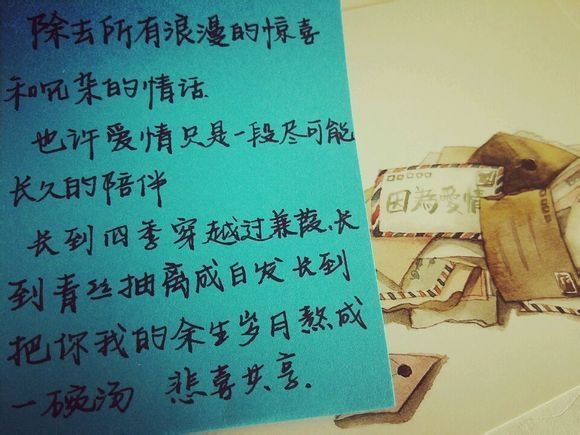 除去所有浪漫的惊喜
和冗杂的情话
也许爱情只是一段尽可能
长久的陪伴
长到四季穿越过蒹葭、长
到青丝抽离成白发 长到
把你我的余生岁月熬成
一碗汤 悲喜共享.
因為愛情